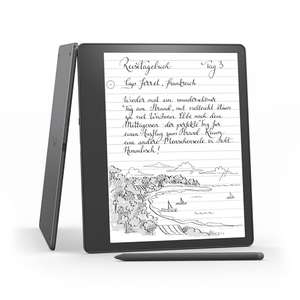 Reisetagebuch Tag 3
Cap Ferret, Frankreich
Wieder mal ein wunderschöner
Tag am Strand, mit vielleicht etwas
zu viel Wind. Ebbe nach dem
Mittagessen: der perfekte Tag für
einen Ausflug zum Strand. Kaum
eine andere Menschenseele in Sicht.
Himmlisch!